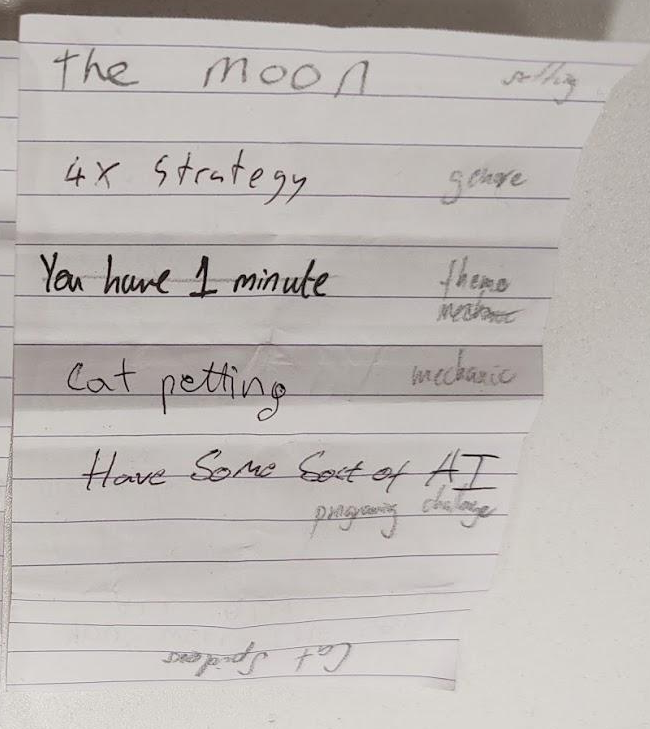 the moon setting
4X Strategy genre
You have 1 minute theme
mechanic
Cat petting mechanic
Have Some Sort of AI
programing challenge
Cat Spiders